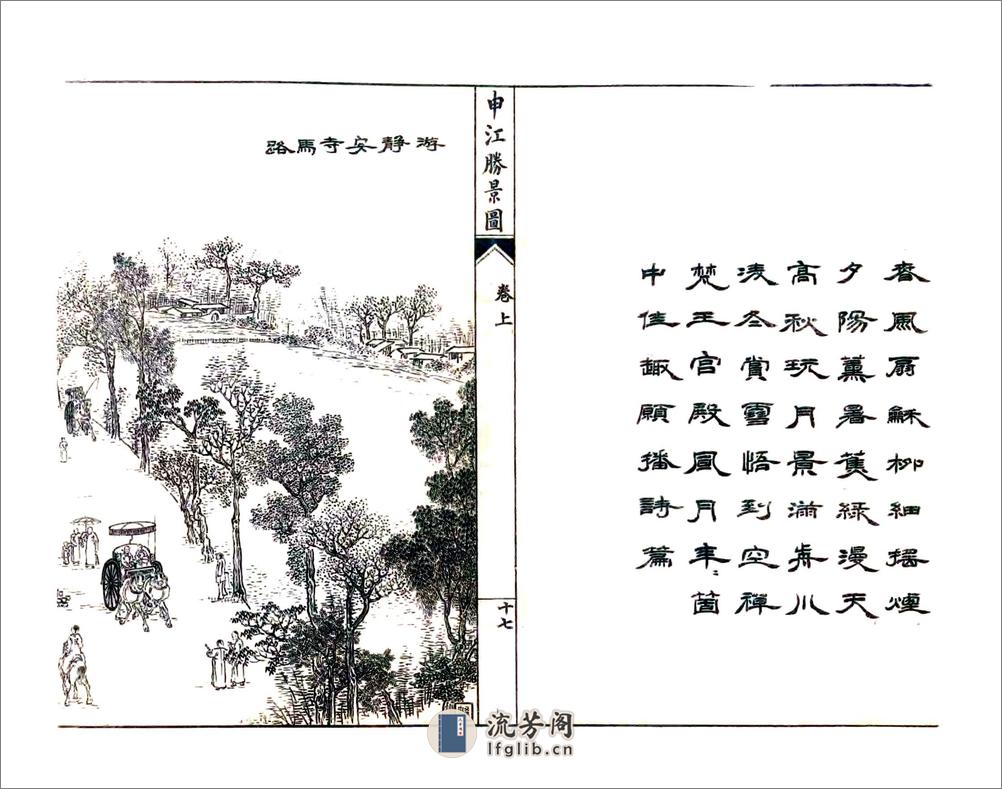 春風扇穌柳細搖煙
夕陽薰暑蕉綠漫天
高秋玩月景滿前川
凌冬賞雪悟到空禪
梵王宮殿風月年〻箇
中佳趣願播詩篇
申江勝景圖
卷上
十七
游靜安寺馬路
流芳阁
lfglib.cn